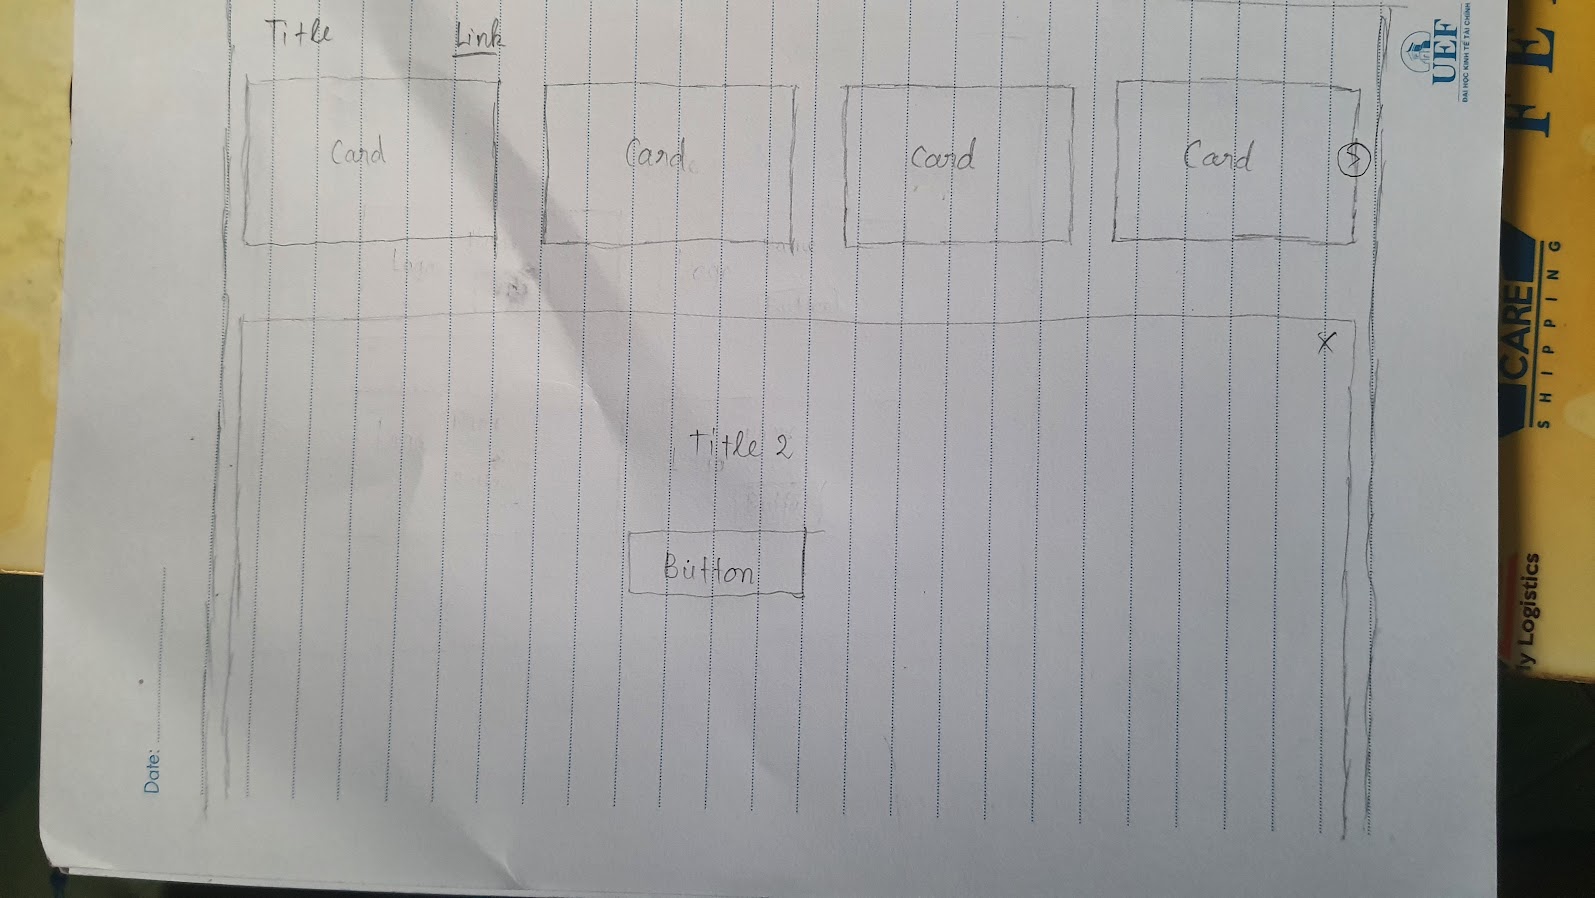 Title Link
Card Card Card Card
X
Title 2
Button
Date:
UEF
ĐẠI HỌC KINH TẾ TÀI CHÍNH
FE
CARE
SHIPPING
ly Logistics